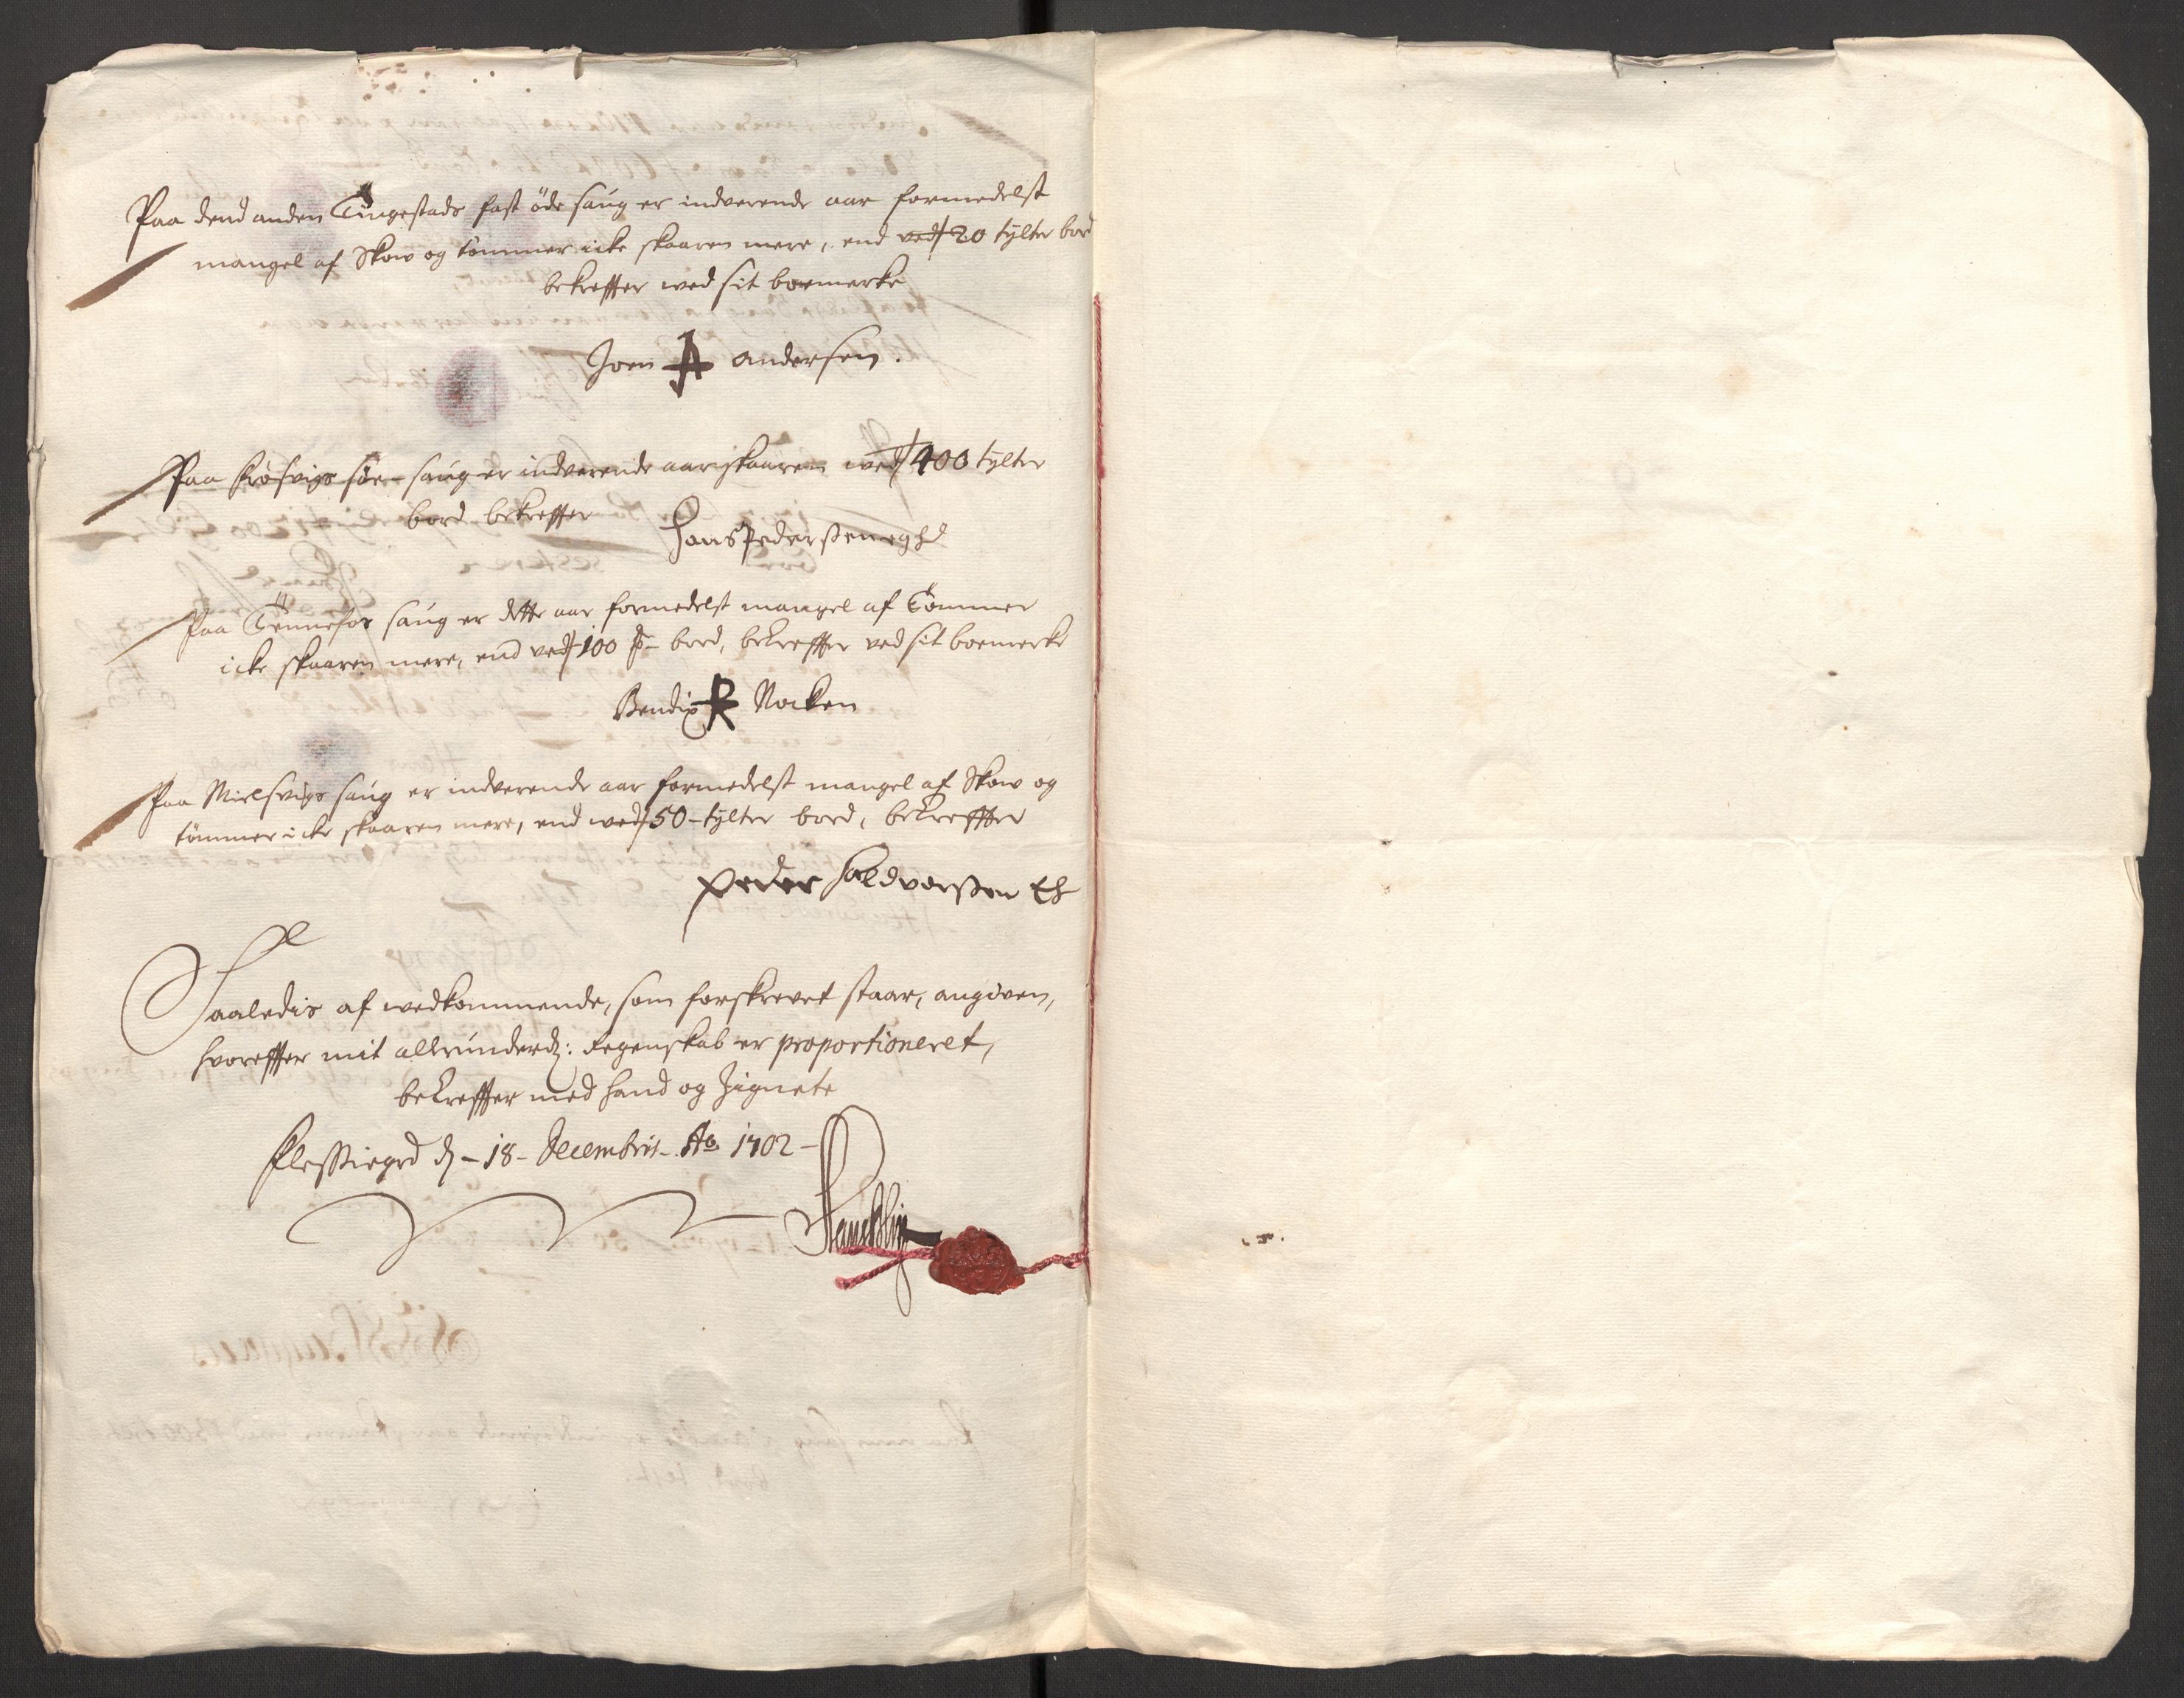 Paa dend anden Tingestads fast öde saug er indverende aar formedelst
mangel af Skow og tömmer icke skaaren mere, end ved 20 tylter bord
bekreffter med sit boemerke
Joen A Andersen.
Paa Krosvigs söe-saug er indverende aar skaaren wed 400 tylter
bord bekreffter
Hans Pedersen egh
Paa Tennefos saug er dette aar formedelst mangel af Tömmer
icke skaaren mere, end ved 100 bord, bekreffter ved sit boemerke
Bendix Nocken
Paa Mielsvigs saug er indverende aar formedelst mangel af Skow og
tömmer icke skaaren mere, end wed 50 tylter bord, bekreffter
Peder Haldvorsen Eh
Saaledis af wedkommende, som forskrevet staar, angiven,
hvoreffter mit allerunderd: Regenskab er proportioneret,
bekreffter med Hand og Zignete
d 18 Decembris Ao 1702